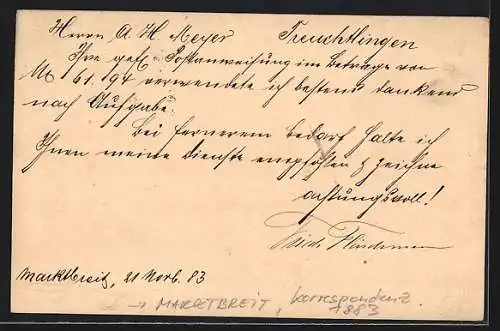 Herrn A. H. Meyer Treuchtlingen
Ihre gefl. Postanweisung im Betrage von
M 61.94 verwendete ich bestens dankend
nach Aufgabe.
Bei fernerem bedarf halte ich
Ihnen meine Dienste empfohlen & zeichne
achtungsvoll!
Marktbreit, 21 Novb. 83
→ MARKTBREIT, korrespondenz.
1883